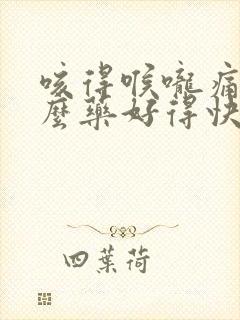 咳得喉嚨痛
麼藥好得快
四葉荷